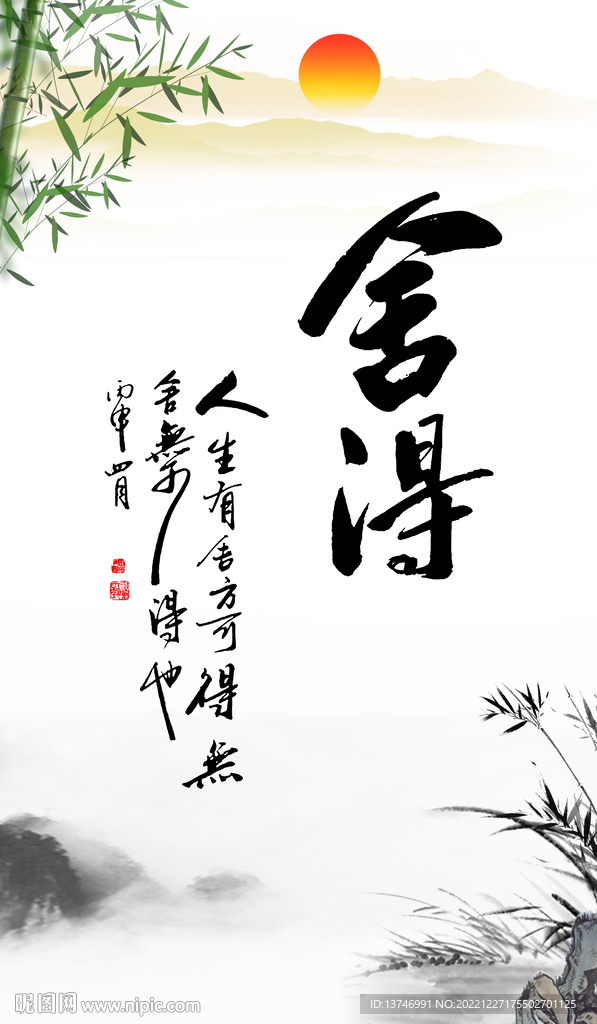 舍得
人生有舍方可得無
舍無得也
丙申四月
昵图网 www.nipic.com
ID:13746991 NO:20221227175502701125